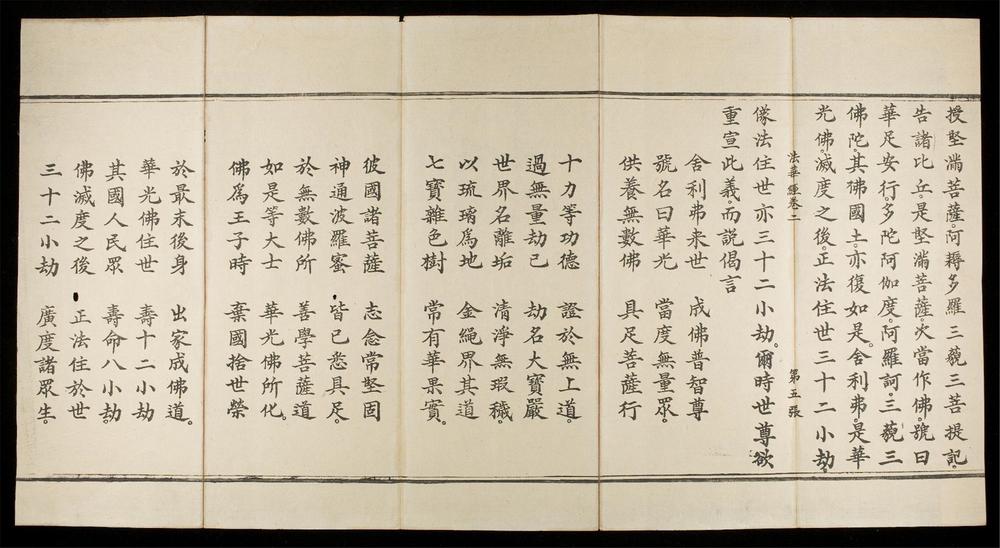 授堅滿菩薩。阿耨多羅三藐三菩提記。
告諸比丘。是堅滿菩薩次當作佛。號曰
華足安行。多陀阿伽度。阿羅訶。三藐三
佛陀。其佛國土。亦復如是。舍利弗。是華
光佛。滅度之後。正法住世三十二小劫。
法華經卷二 第五張
像法住世亦三十二小劫。爾時世尊欲
重宣此義。而說偈言
舍利弗来世 成佛普智尊
號名曰華光 當度無量眾。
供養無數佛 具足菩薩行
十力等功德 證於無上道。
過無量劫已 劫名大寶嚴
世界名離垢 清淨無瑕穢。
以琉璃爲地 金繩界其道
七寶雜色樹 常有華果實。
彼國諸菩薩 志念常堅固
神通波羅蜜 皆已悉具足。
於無數佛所 善學菩薩道
如是等大士 華光佛所化。
佛爲王子時 棄國捨世榮
於最末後身 出家成佛道。
華光佛住世 壽十二小劫
其國人民眾 壽命八小劫。
佛滅度之後 正法住於世
三十二小劫 廣度諸眾生。